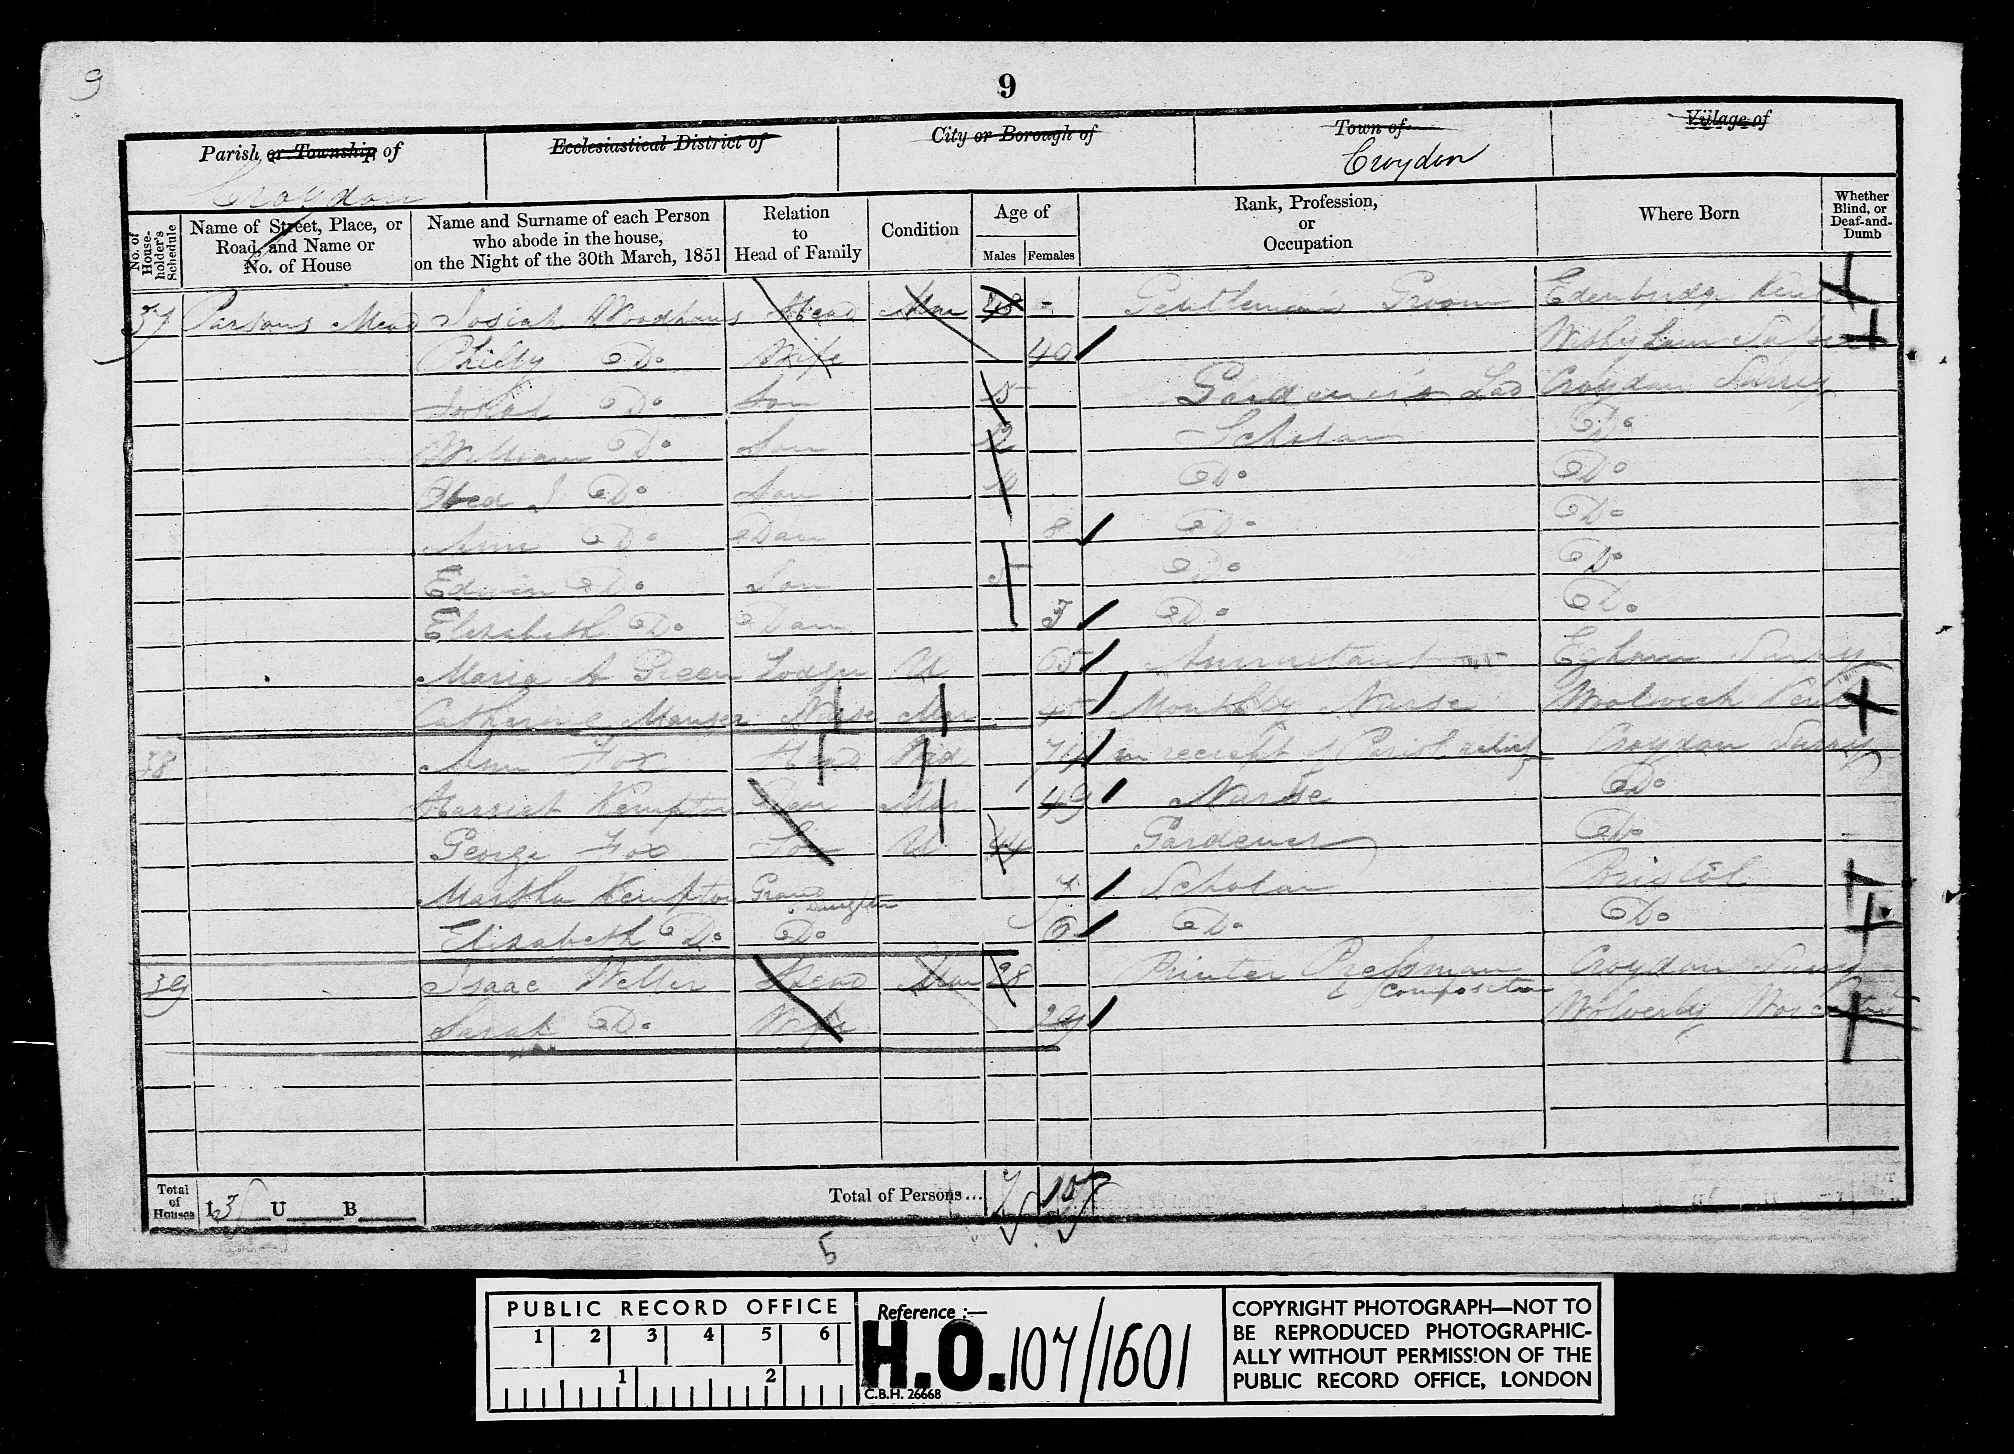 9
9
Parish or Township of
Ecclesiastical District of
City or Borough of
Town of
Village of
Croydon
Croydon
No. of House-holder's Schedule
Name of Street, Place, or Road, and Name or No. of House
Name and Surname of each Person who abode in the house, on the Night of the 30th March, 1851
Relation to Head of Family
Condition
Age of
Males
Females
Rank, Profession, or Occupation
Where Born
Whether Blind, or Deaf-and-Dumb
37 Parsons Mead Josiah Woodhams Head Mar 48 - Gentleman's Groom Edenbridge Kent
Do Wife 40
Josiah Do Son 15 Gardener's Lad Croydon Surrey
William Do Son 12 Scholar Do
Do Son Do Do
Ann Do Daur 8 Do Do
Edwin Do Son 5 Do Do
Elizabeth Do Daur 3 Do Do
Maria A Green Lodger U 65 Annuitant Egham Surrey
Catherine Manser Nurse Mar 45 Monthly Nurse Woolwich Kent
38 Ann Fox Head Wid 74 in receipt of Parish relief Croydon Surrey
Harriet Kempton Daur Mar 49 Nurse Do
George Fox Son U 44 Gardener Do
Martha Kempton Grand Daughter 7 Scholar Bristol
Elizabeth Do Do 6 Do Do
39 Isaac Weller Head Mar 28 Printer Pressman & Compositor Croydon Surrey
Sarah Do Wife 29 Wolverley
Total of Houses
I 3 U B
Total of Persons...
7
10
5
PUBLIC RECORD OFFICE
1 2 3 4 5 6
1 2
Reference :—
H.O. 107/1601
C.B.H. 26668
COPYRIGHT PHOTOGRAPH—NOT TO
BE REPRODUCED PHOTOGRAPHIC-
ALLY WITHOUT PERMISSION OF THE
PUBLIC RECORD OFFICE, LONDON